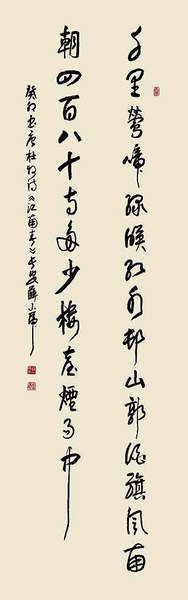 千里莺啼绿映红水村山郭酒旗风南
朝四百八十寺多少楼台烟雨中
癸卯书唐杜牧诗《江南春》